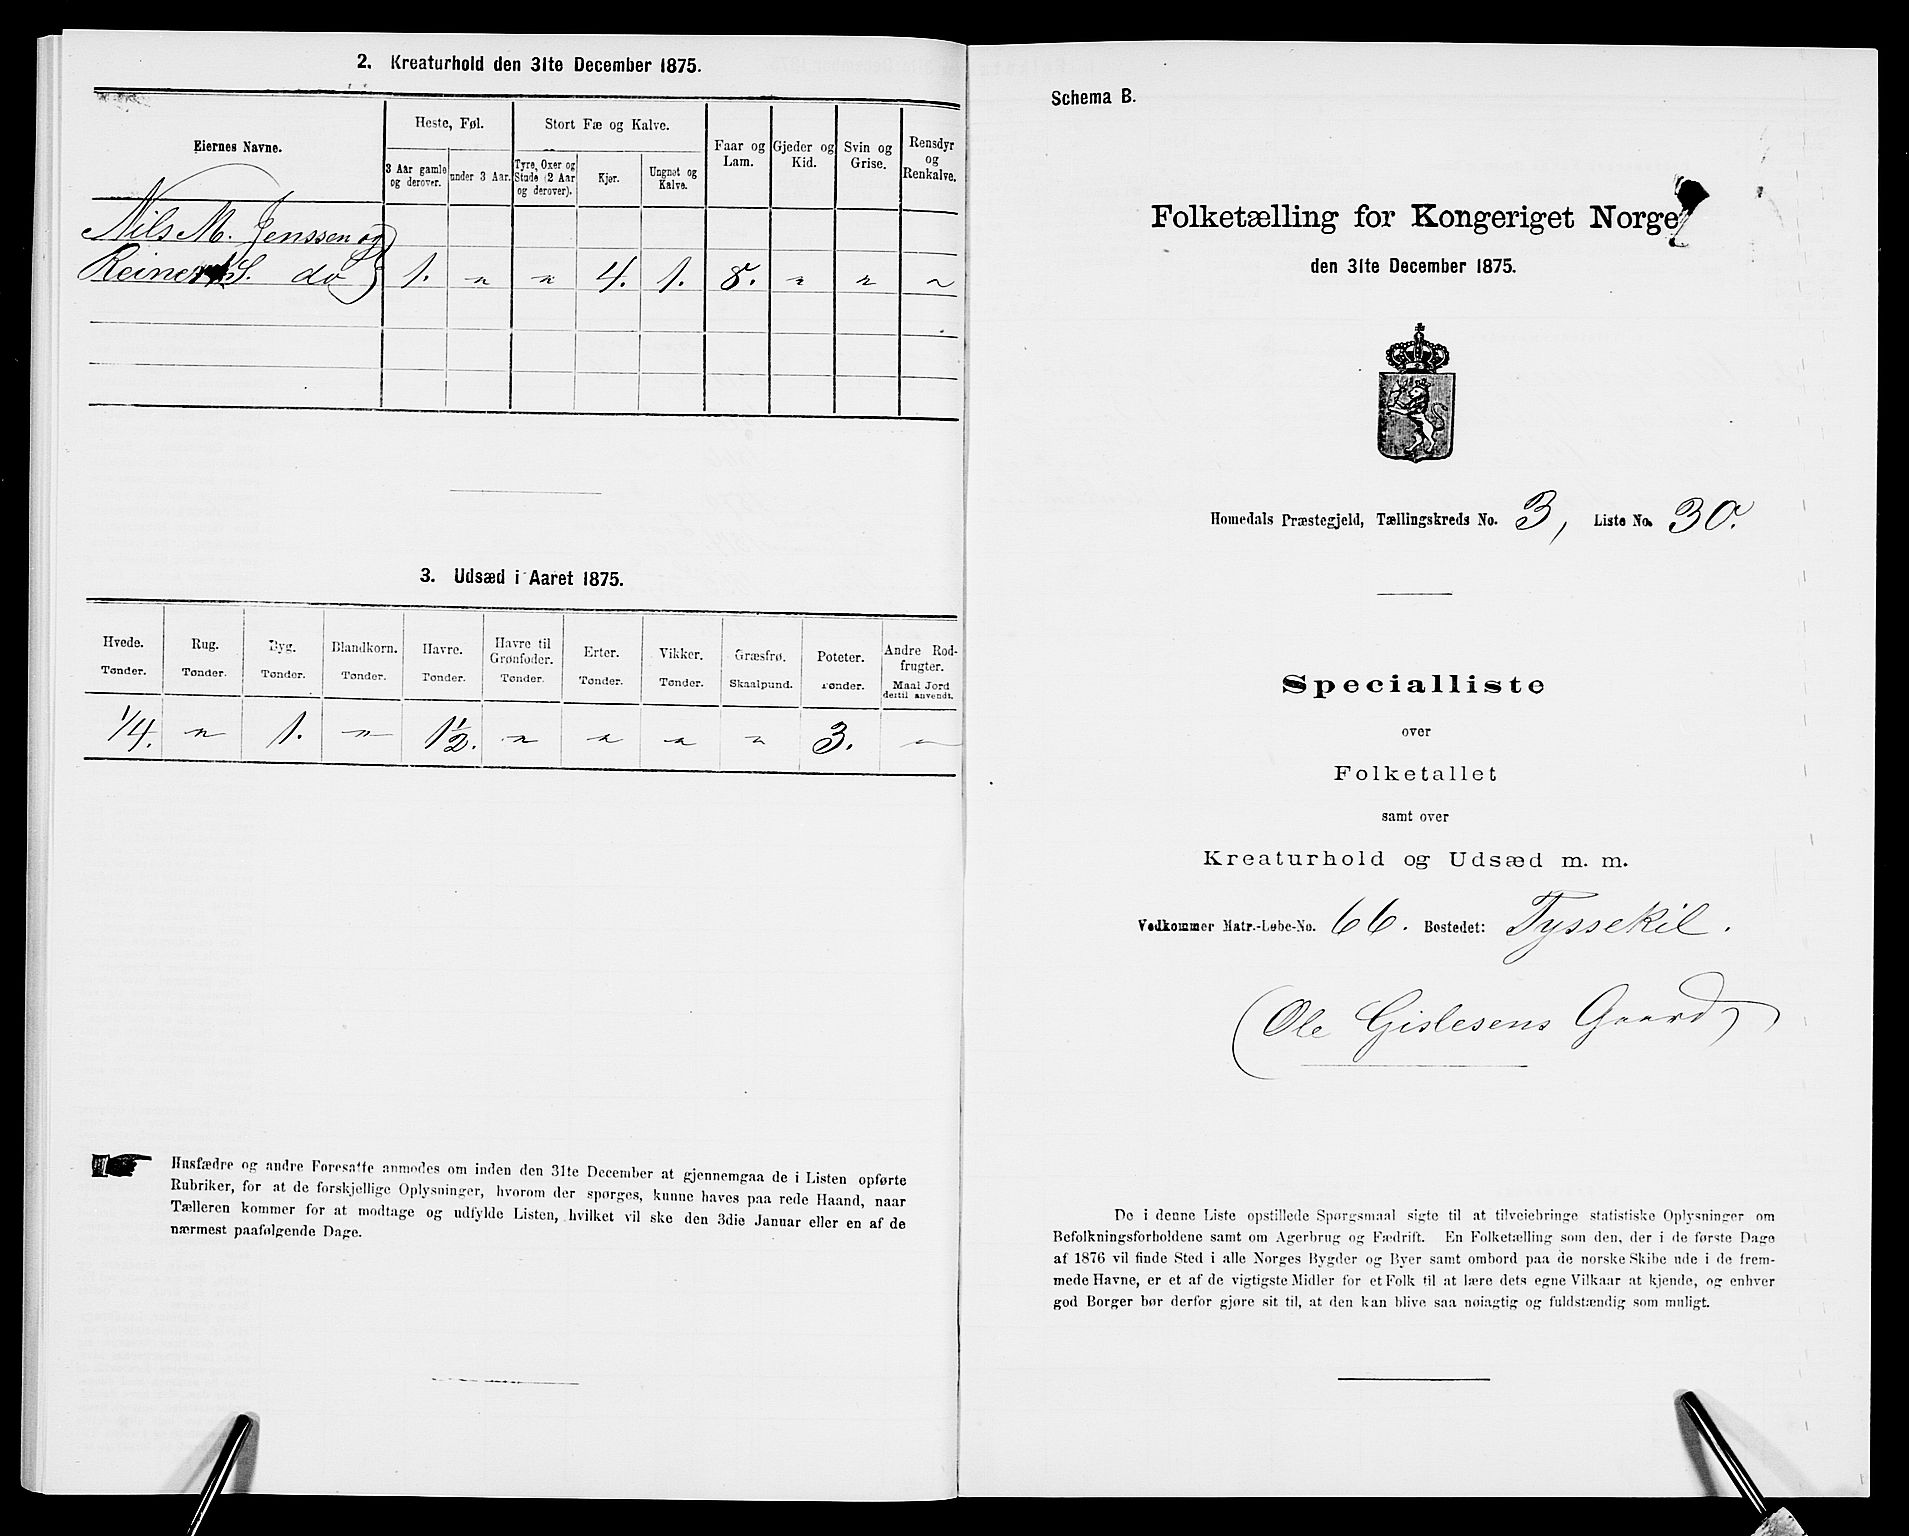 2. Kreaturhold den 31te December 1875.
Eiernes Navne.
Heste, Føl.
Stort Fæ og Kalve.
Faar og Lam.
Gjeder og Kid.
Svin og Grise.
Rensdyr og Renkalve.
3 Aar gamle og derover.
under 3 Aar.
Tyre, Oxer og Stude (2 Aar og derover).
Kjør.
Ungnøt og Kalve.
Nils M. Jenssen og
Reinert S. do 1. " " 4. 1. 8. " " "
3. Udsæd i Aaret 1875.
Hvede. Rug. Byg. Blandkorn. Havre. Havre til Grønfoder. Erter. Vikker. Græsfrø. Poteter. Andre Rodfrugter.
Tønder. Tønder. Tønder. Tønder. Tønder. Tønder. Tønder. Tønder. Skaalpund. Tønder. Maal Jord dertil anvendt.
1/4. " 1. " 1 1/2. " " " " 3. "
Husfædre og andre Foresatte anmodes om inden den 31te December at gjennemgaa de i Listen opførte
Rubriker, for at de forskjellige Oplysninger, hvorom der spørges, kunne haves paa rede Haand, naar
Tælleren kommer for at modtage og udfylde Listen, hvilket vil ske den 3die Januar eller en af de
nærmest paafølgende Dage.
Schema B.
Folketælling for Kongeriget Norge
den 31te December 1875.
Homedals Præstegjeld, Tællingskreds No. 3, Liste No. 30.
Specialliste
over
Folketallet
samt over
Kreaturhold og Udsæd m. m.
Vedkommer Matr.-Løbe-No. 66. Bostedet: Tyssekil.
(Ole Gislesens Gaard)
De i denne Liste opstillede Spørgsmaal sigte til at tilveiebringe statistiske Oplysninger om
Befolkningsforholdene samt om Agerbrug og Fædrift. En Folketælling som den, der i de første Dage
af 1876 vil finde Sted i alle Norges Bygder og Byer samt ombord paa de norske Skibe ude i de frem-
mede Havne, er et af de vigtigste Midler for et Folk til at lære dets egne Vilkaar at kjende, og enhver
god Borger bør derfor gjøre sit til, at den kan blive saa nøiagtig og fuldstændig som muligt.